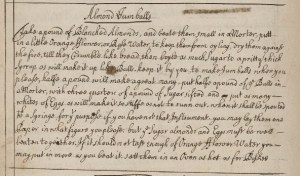 Almond Jumballs
Take a pound of Blanched Almonds, and beate them small in a Morter, putt
in a little Orange flower, or Rose Water, to keep them from oyling, dry them against
the fire, till they Crumble like bread then boyle as much Sugar to a pritty thick
Syrup as will make it up in Balls, keep it by you to make Jumballs when you
please, half a pound will make a great many, putt half a pound of the Balls in
a Morter, with three quarters of a pound of Sugar sifted and put as many
whites of Eggs as will make it so stiff as not to run out, when it shall be putt
to a Syringe for the purpose if you have not that Instrument you may lay them on
Paper in what figure you please: but the Sugar almonds and Eggs must be well
beaten together, if it should not tast enough of Orange flower Water you
may put in more as you beat it, sett them in an Oven as hot as for Biskes